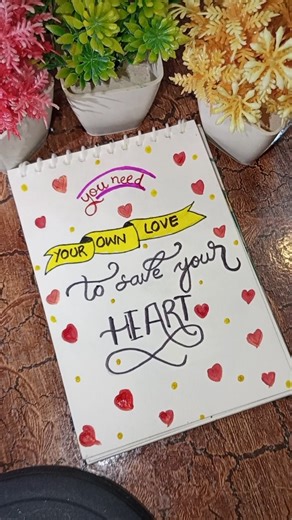 you need
YOUR OWN LOVE
to save your
HEART